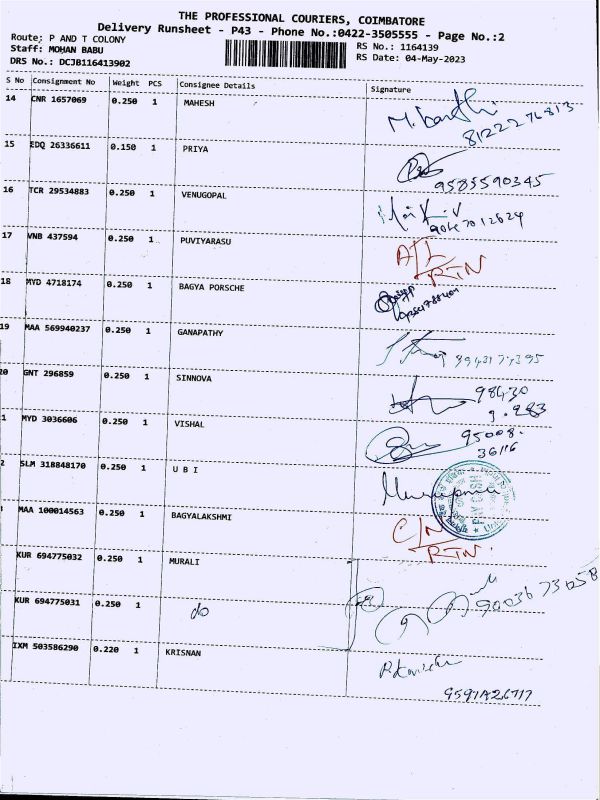 THE PROFESSIONAL COURIERS, COIMBATORE
Delivery Runsheet - P43 - Phone No.:0422-3505555 - Page No.:2
Route; P AND T COLONY
RS No.: 1164139
Staff: MOHAN BABU
RS Date: 04-May-2023
DRS No.: DCJB116413902
S No Consignment No Weight PCS Consignee Details Signature
14 CNR 1657069 0.250 1 MAHESH
8122276813
15 EDQ 26336611 0.150 1 PRIYA
9585590345
16 TCR 29534883 0.250 1 VENUGOPAL
17 VNB 437594 0.250 1 PUVIYARASU
A/L
RTN
18 MYD 4718174 0.250 1 BAGYA PORSCHE
19 MAA 569940237 0.250 1 GANAPATHY
20 GNT 296859 0.250 1 SINNOVA
98430
1 MYD 3036606 0.250 1 VISHAL
95008.
36116
2 SLM 318848170 0.250 1 U B I
MAA 100014563 0.250 1 BAGYALAKSHMI
C/N
RTN.
KUR 694775032 0.250 1 MURALI
9003673058
KUR 694775031 0.250 1 do
IXM 503586290 0.220 1 KRISNAN